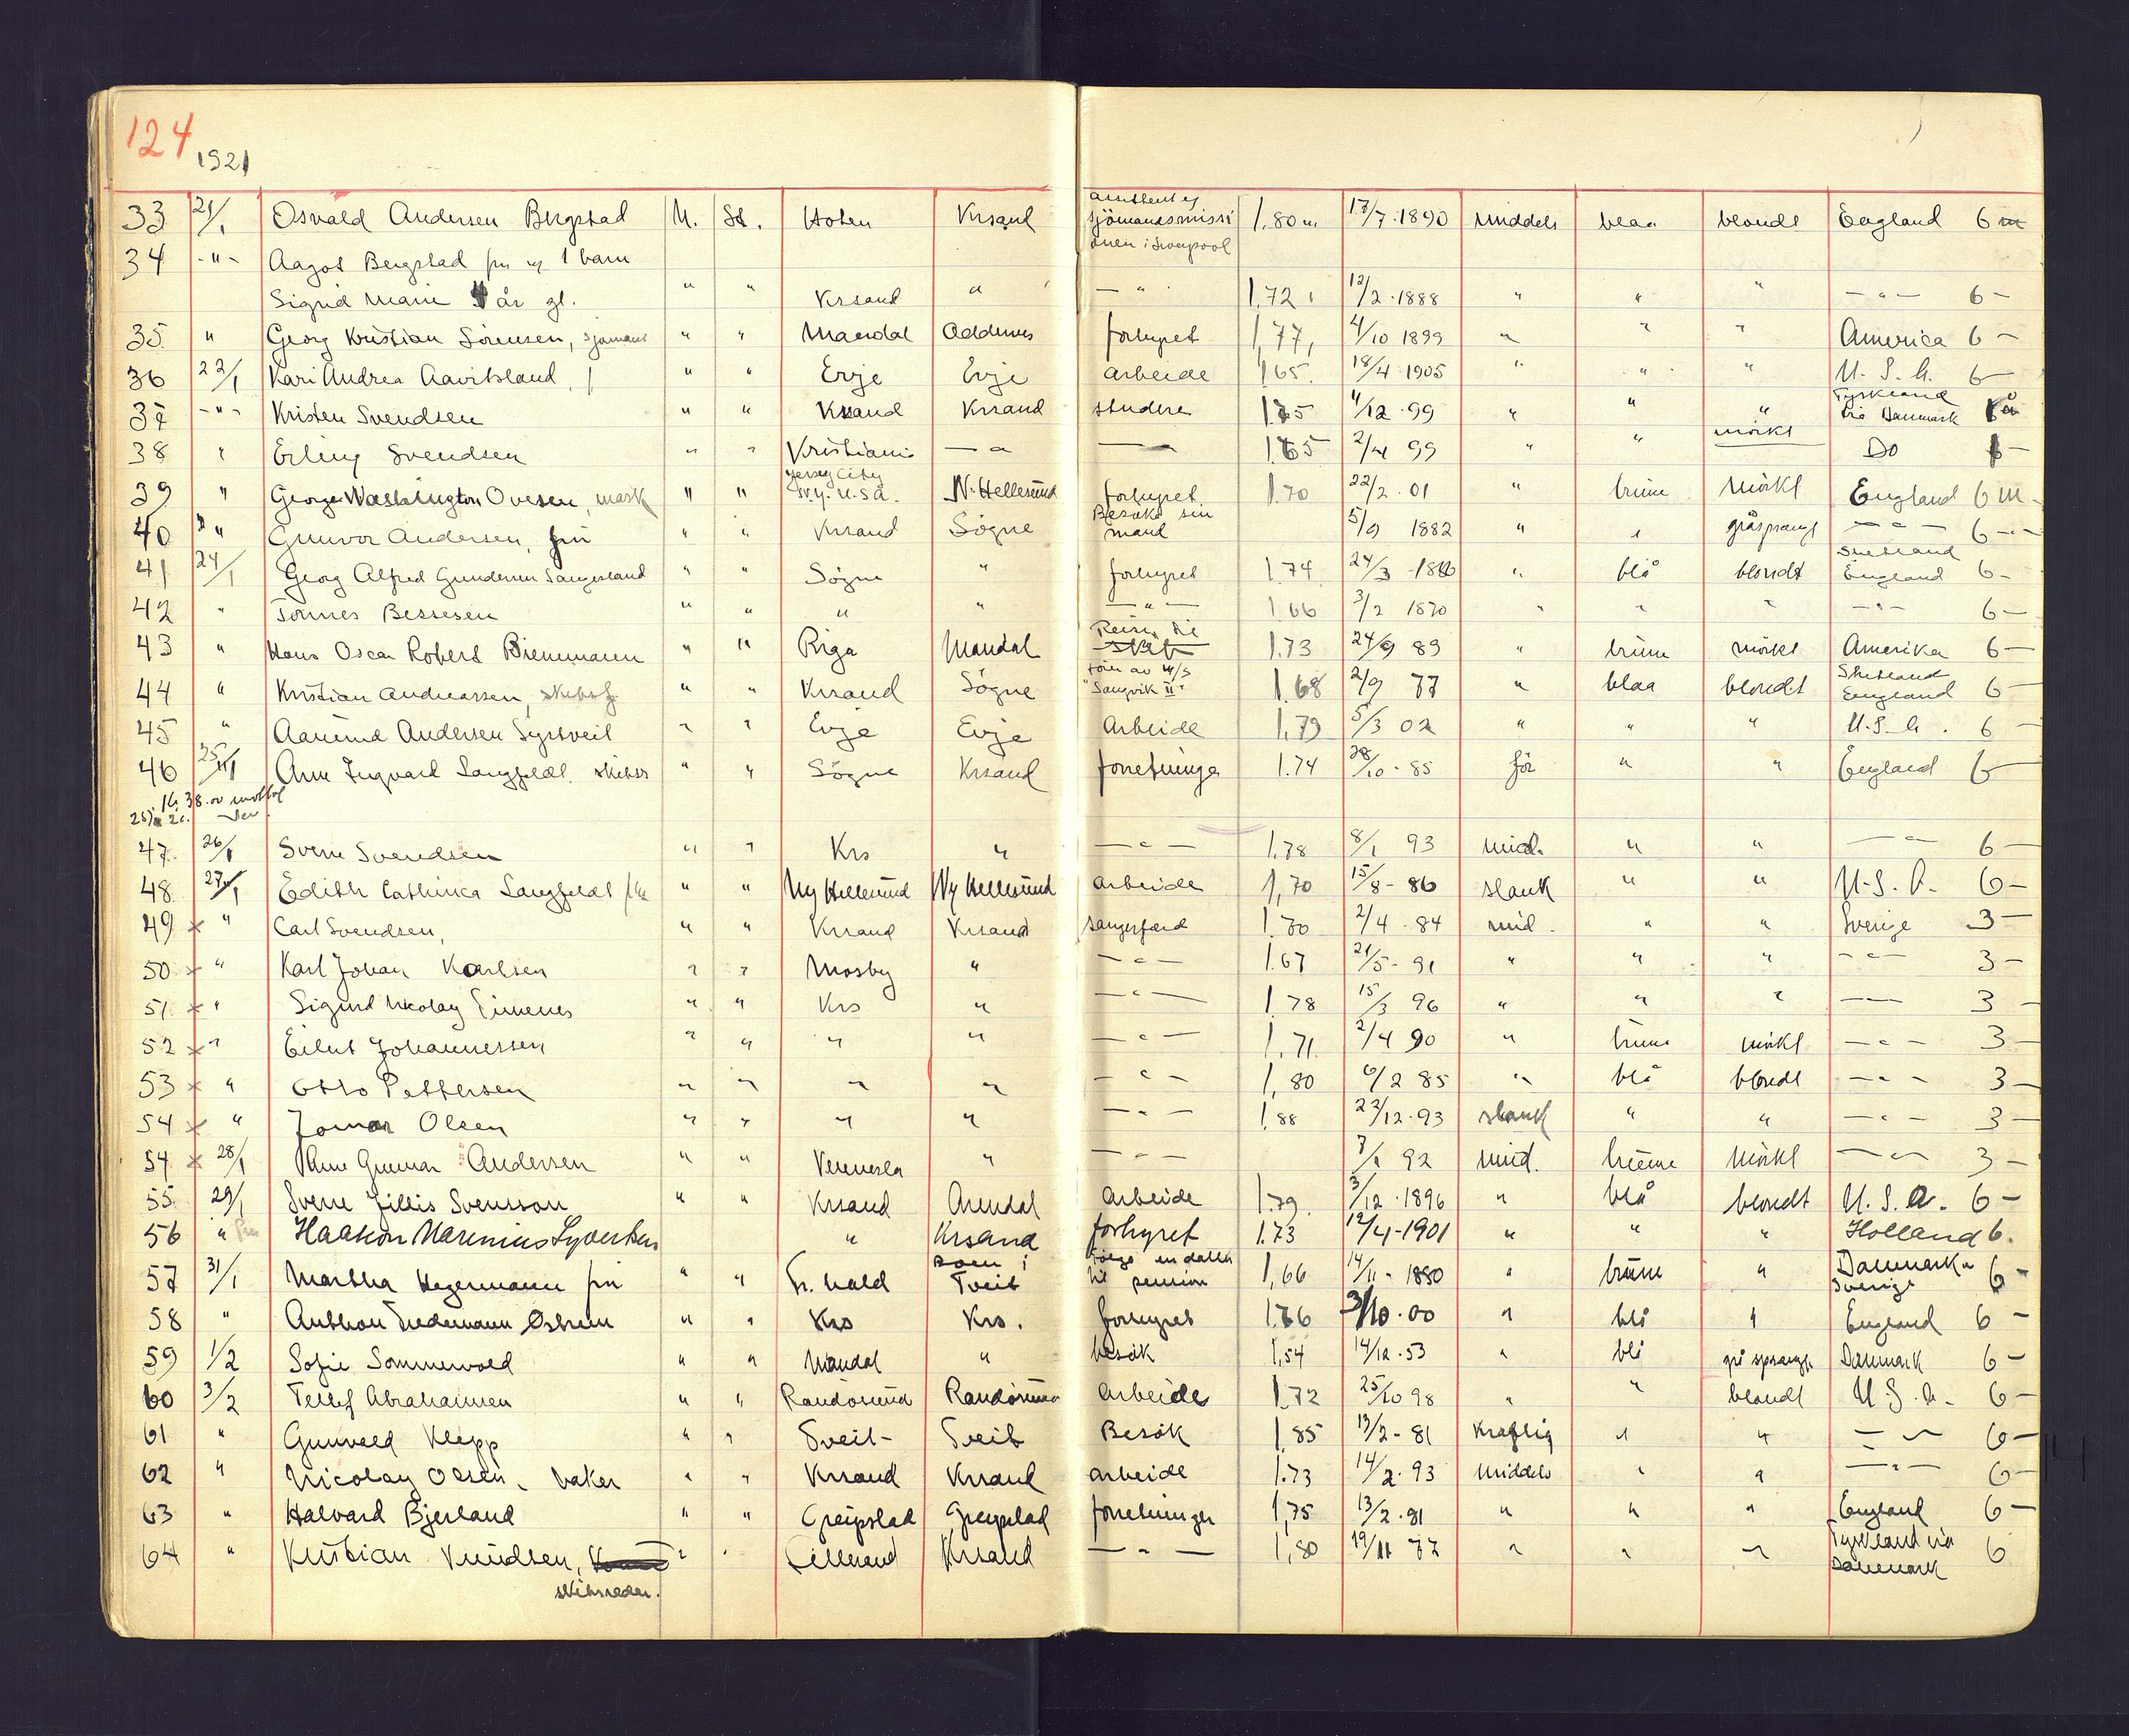 124
1921
33 21/1 Osvald Andersen Bergstad N. St. Holen Krsand assistent ved sjömandsmissionen i Liverpool 1.80 m 17/7.1890 middels blaa blondt England 6 m
34 -"- Aagot Bergstad fru og 1 barn
Sigrid Marie 4 år gl. " " Krsand " - " - 1,72 12/2.1888 " " " - " - 6 -
35. " Georg Kristian Sörensen, sjömand " " Mandal Oddernes forhyret 1,77, 4/10 1899 " " " America 6 -
36 22/1 Kari Andrea Aavitsland, f " " Evje Evje arbeide 1,65. 18/4.1905 " " " U.S.A. 6 -
37 -"- Kristen Svendsen " " Krsand Krsand studere 1.75 4/12.99 " " " Tyskland via Danmark
38 " Erling Svendsen " " Kristiania - " - 1.65 2/4 99 " " mörkt Do
39 " George Washington Ovesen, mask " " Jersey City N.Y. U.S.A. N. Hellesund forhyret 1.70 22/2.01 " brune mörkt England 6 m -
40 " Gunvor Andersen, fru " " Krsand Sögne Besöke sin mand 5/9 1882 " " gråsprængt - " - 6 -
41 24/1 Georg Alfred Gundersen Langesland " " Sögne " forhyret 1.74 24/3 - " blå blondt Shetland England 6 -
42 " Tönnes Bessesen " " " " - " - 1.66 3/2 1870 " " " - " - 6 -
43 " Hans Oscar Robert Bienmann " " Riga Mandal 1.73 24/9 89 " brune mörkt Amerika 6 -
44 " Kristian Andreassen, skibsf. " " Krsand Sögne förer av M/S "Langvik II" 1.68 2/9 77 " blaa blondt Shetland England 6 -
45 " Aanund Andersen Syrtveit " " Evje Evje Arbeide 1,79 5/3 02 " " " U.S.A. 6 -
46 25/1 Arne Ingvard Langfeldt. skibsr " " Sögne Krsand forretninger 1.74 28/10 - 85 för " " England 6 -
Kr. 38.00
47. 26/1 Sverre Svendsen " " Krs " - " - 1.78 8/1 93 mid. " " - " - 6 -
48 27/1 Edith Cathinca Langfeldt " " Ny Hellesund Ny Hellesund arbeide 1,70 15/8 - 86 slank " " U.S.A. 6 -
49 x " Carl Svendsen, " " Krsand Krsand sangerfærd 1.80 2/4.84 mid. " " Sverige 3 -
50 x " Karl Johan Karlsen " " Mosby " - " - 1.67 21/5 - 91 " " " - " - 3 -
51. x " Sigurd Nicolay Simenes " " Krs " - " - 1.78 15/3 96 " " " - " - 3 -
52 x " Eilert Johannessen " " " " - " - 1.71. 2/4 90 " brune mörkt - " - 3 -
53 x " Otto Pettersen " " " " - " - 1,80 6/2 85 " blå blondt - " - 3 -
54 x " Jomar Olsen " " " " - " - 1.88 22/12.93 slank " " - " - 3 -
54 x 28/1 Arne Gunnar Andersen " " Vennesla " - " - 7/1 92 mid. brune mörkt - " - 3 -
55. 29/1 Sverre Jillis Svensson " " Krsand Arendal arbeide 1.79. 3/12.1896 " blå blondt U.S.A. 6 -
56 " Haakon Marenius Syvertsen " Krsand forhyret 1.73 12/4 - 1901 " " " Holland 6.
57 31/1 Martha Hegermann fru " " Fr. hald Tveit følge en datter til pension 1,66 14/11 - 1880 " brune " Danmark Sverige 6 -
58 " Anthon Tiedemann Östrem " " Krs Krs. forhyret 1.76 3/10.00 " blå " England 6 -
59 1/2 Sofie Sommervold " " Mandal " besök 1,54 14/12.53 " blå grå sprængt. Danmark 6 -
60 3/2 Tellef Abrahamsen " " Randösund Randösund arbeide 1.72 25/10 98 " " blondt U.S.A. 6 -
61 " Gunvald Klepp " " Tveit Tveit Besök 1,85 13/2 - 81 Kraftig " " - " - 6 -
62 " Nicolay Olsen, baker " " Krsand Krsand arbeide 1.73 14/2.93 middels " " - " - 6 -
63 " Halvard Bjerland " " Greipstad Greipstad forretninger 1,75 13/2.91 " " " England 6 -
64 " Kristian Knudsen, " " Lillesand Krsand - " - 1,80 19/11 77 " " " Tyskland via Danmark 6
skibsreder.